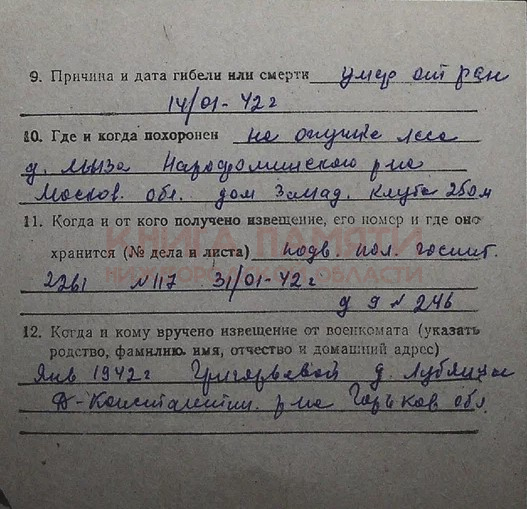 9. Причина и дата гибели или смерти умер от ран
14/01-42 г
10. Где и когда похоронен на опушке леса
д. мыза Нарофоминского р-на
Москов. обл. дом Запад. клуба 250м
11. Когда и от кого получено извещение, его номер и где оно
хранится (№ дела и листа) подв. пол. госпит.
КНИГА ПАМЯТИ
НИЖЕГОРОДСКОЙ ОБЛАСТИ
2261 N 117 31/01-42 г
д 9 л 246
12. Когда и кому вручено извещение от военкомата (указать
родство, фамилию, имя, отчество и домашний адрес)
Янв 1942 г Григорьевой д.
Д-Константин. р-на Горьков обл